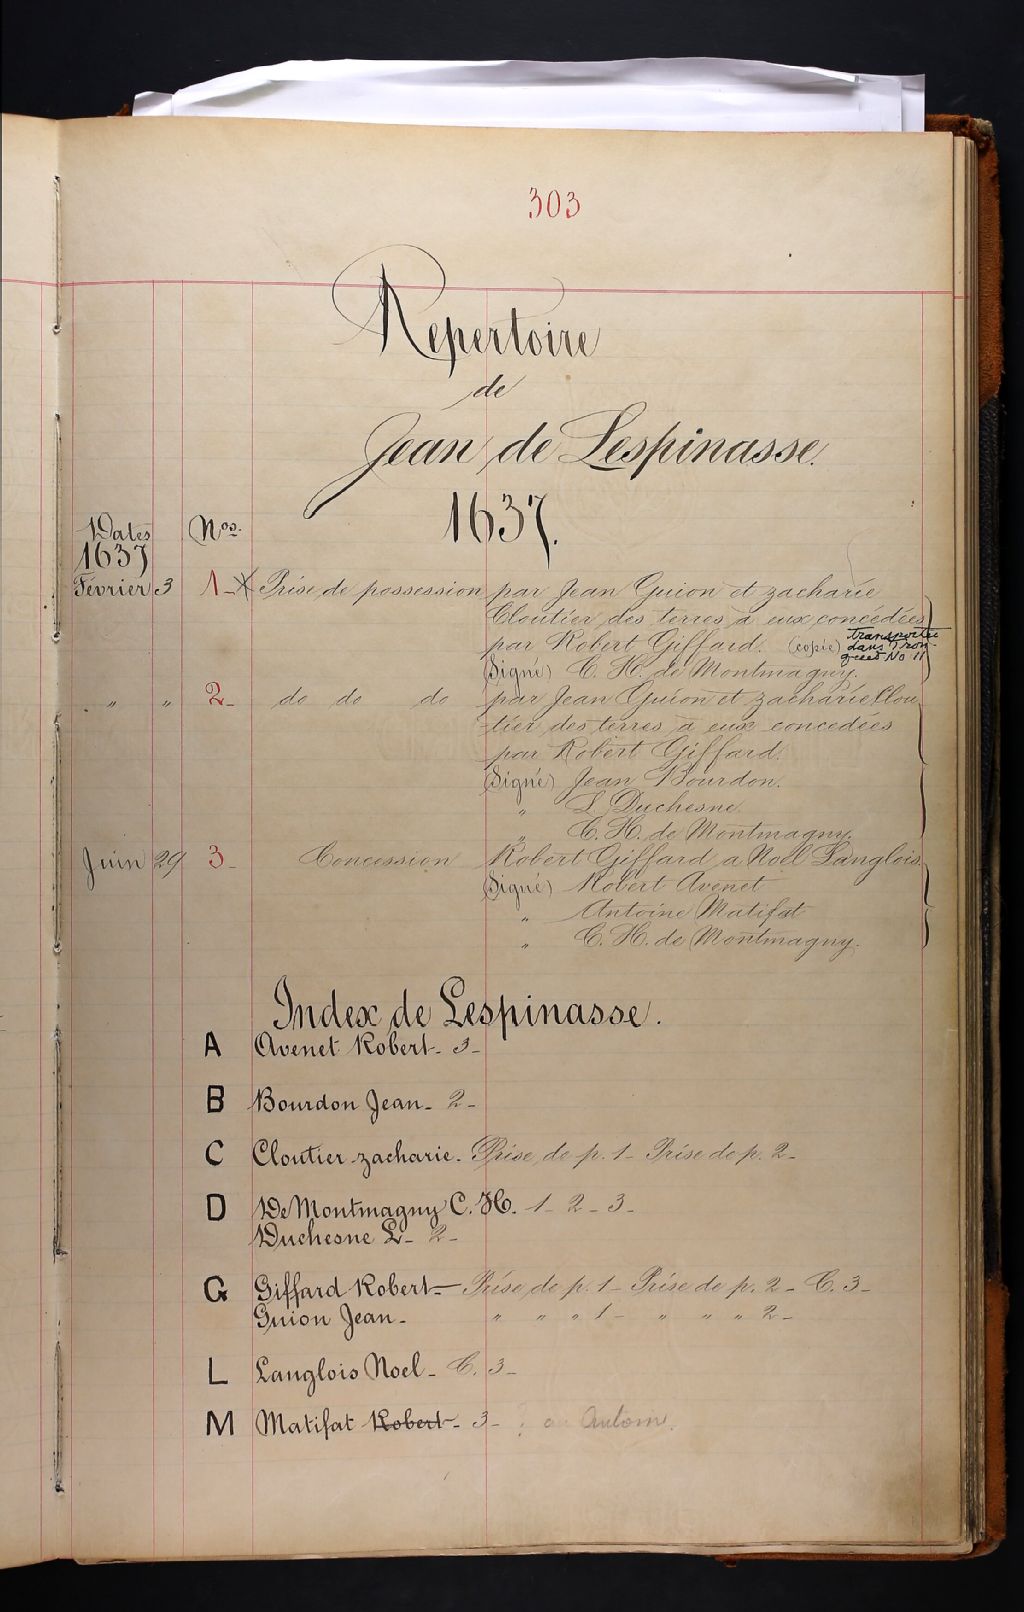 303
Repertoire
de
Jean de Lespinasse.
1637.
Dates Nos.
1637
Février 3 1- X Prise de possession par Jean Guion et zacharie
Cloutier des terres à eux concédées
par Robert Giffard. (copie) transportée
dans Tron-
quet No 11
(Signé) C. H. de Montmagny.
" " 2- do do do par Jean Guion et zacharie Clou
-tier des terres à eux concedées
par Robert Giffard.
(Signé) Jean Bourdon.
" L Duchesne
" C. H. de Montmagny.
Juin 29 3- Concession Robert Giffard a Noël Langlois
(Signé) Robert Avenet
" Antoine Matifat
" C. H. de Montmagny.
Index de Lespinasse.
A Avenet Robert- 3-
B Bourdon Jean- 2-
C Cloutier zacharie. Prise de p. 1- Prise de p. 2-
D De Montmagny C. H. 1- 2- 3-
Duchesne L- 2-
G Giffard Robert- Prise de p. 1- Prise de p. 2- C. 3-
Guion Jean- " " " 1- " " " 2-
L Langlois Noel- C. 3-
M Matifat Robert- 3- ? ou Antoin.